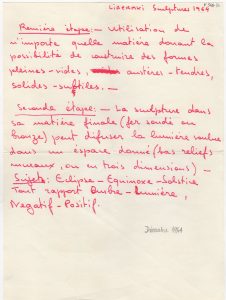 LIBERAKI Sculptures 1964
Première étape: — Utilisation de
n'importe quelle matière donant la
possibilité de construire des formes
pleines - vides, austères - tendres,
solides - subtiles. —
Seconde étape: — La sculpture dans
sa matière finale (fer soudé ou
bronze) peut difuser la lumière voulue
dans un espace donné (bas reliefs
muraux, ou en trois dimensions) —
Sujets: Eclipse — Equinoxe - Solstice
Tout rapport Ombre - Lumière,
Negatif - Positif.
Décembre 1964